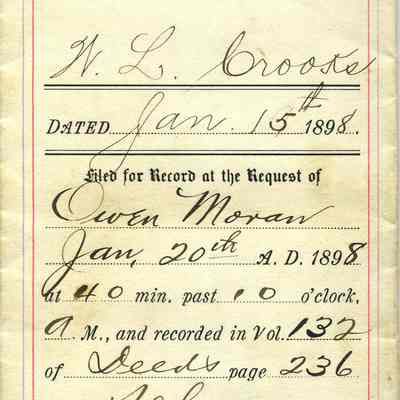 W. L. Crooks
DATED Jan. 15th 1898.
Filed for Record at the Request of
Owen Moran
Jan. 20th A. D. 1898
at 40 min. past 10 o'clock,
A M., and recorded in Vol. 132
of Deeds page 236